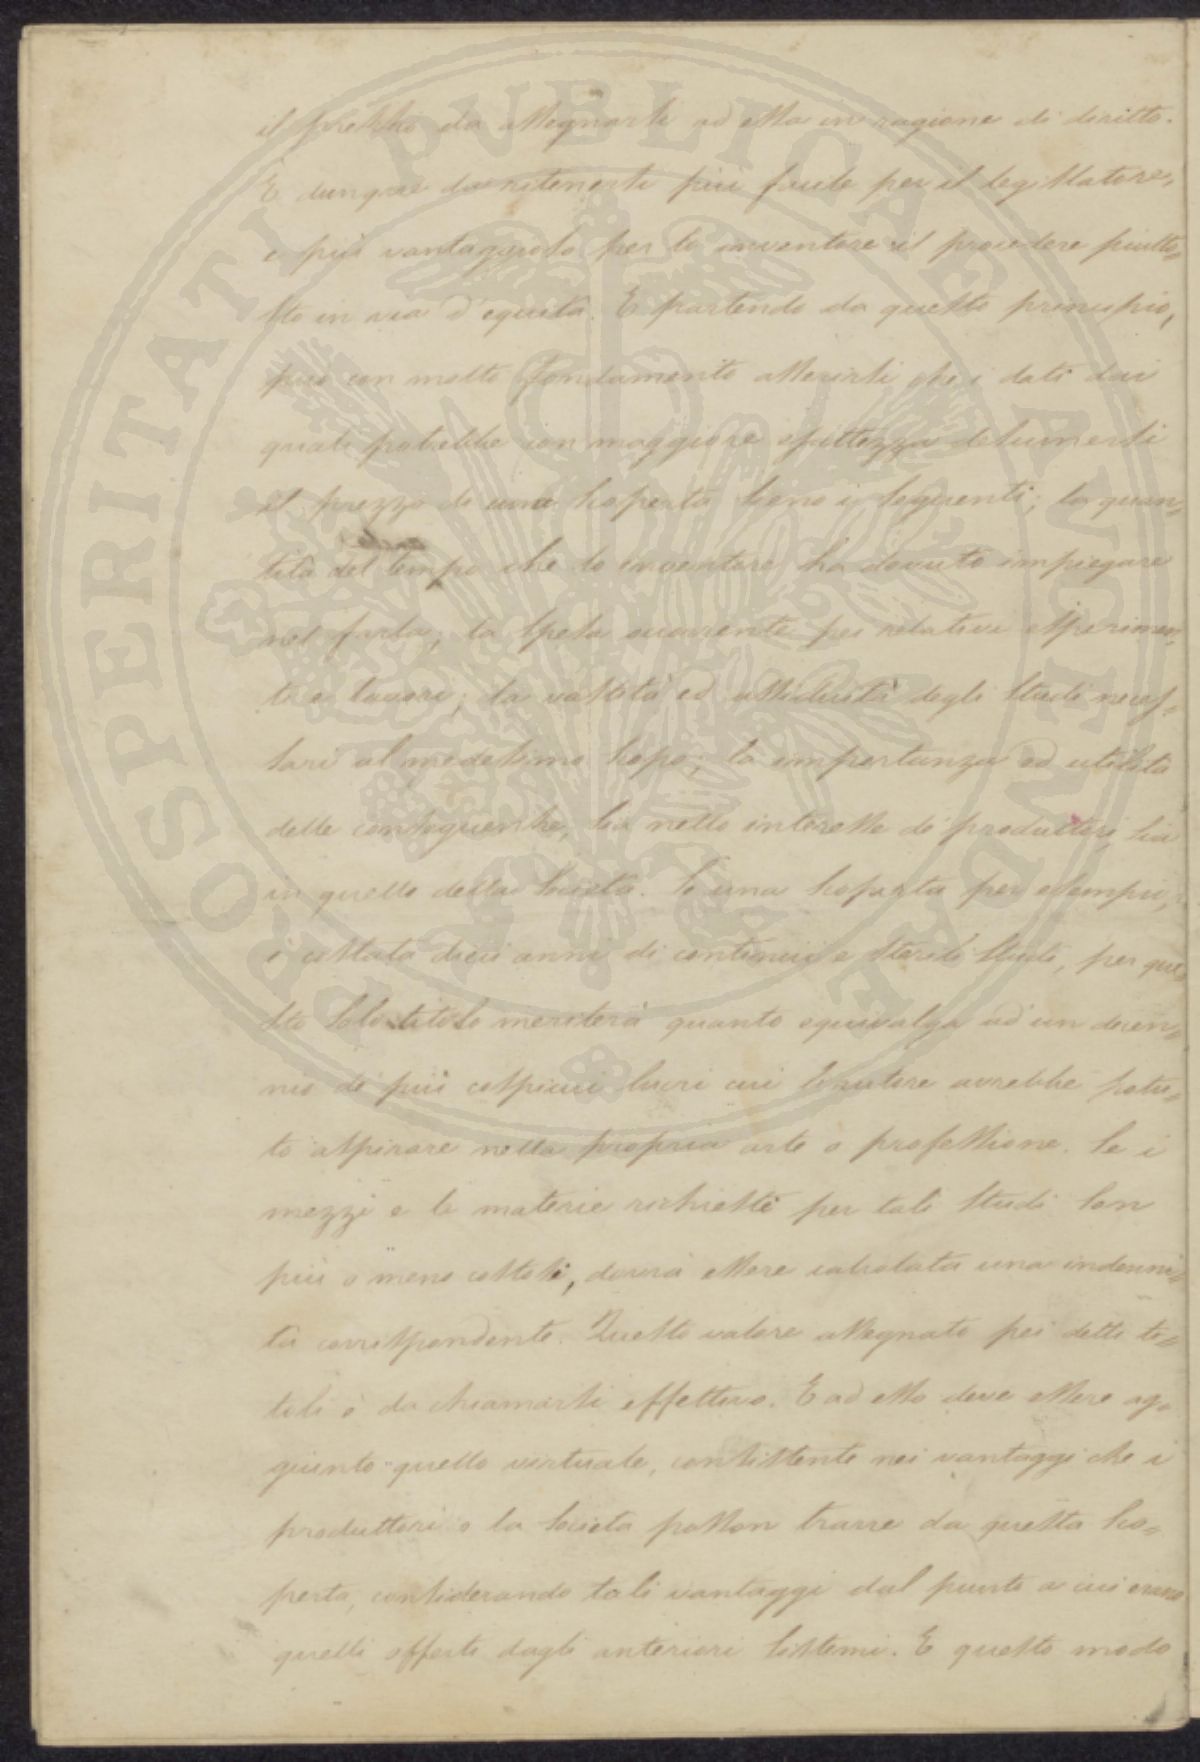 il prezzo da assegnarsi ad essa in ragione di diritto.
È dunque da ritenersi più facile per il legislatore,
e più vantaggioso per lo inventore il procedere piutto=
sto in via d'equità. E partendo da questo principio,
può con molto fondamento asserirsi che i dati dai
quali potrebbe con maggiore esattezza desumersi
il prezzo di una scoperta sieno i seguenti; la quan=
tità del tempo che lo inventore ha dovuto impiegare
nel farla; la spesa occorrente pei relativi esperimen=
ti e lavori; la vastità ed assiduità degli studi neces=
sari al medesimo scopo; la importanza ed utilità
delle conseguenze, sia nello interesse de' produttori, sia
in quello della Società. Se una scoperta per esempio,
è costata dieci anni di continui e sterili studi, per que=
sto solo titolo meriterà quanto equivalga ad un decen=
nio de' più cospicui lucri cui l'autore avrebbe potu=
to aspirare nella propria arte o professione. Se i
mezzi e le materie richieste per tali studi son
più o meno costosi, dovrà essere calcolata una indenni=
tà corrispondente. Questo valore assegnato pei detti ti=
toli è da chiamarsi effettivo. E ad esso deve essere ag=
giunto quello virtuale, consistente nei vantaggi che i
produttori o la Società posson trarre da questa sco=
perta, considerando tali vantaggi dal punto a cui erano
quelli offerti dagli anteriori sistemi. E questo modo
PROSPERITATI PVBLICAE AVGENDAE